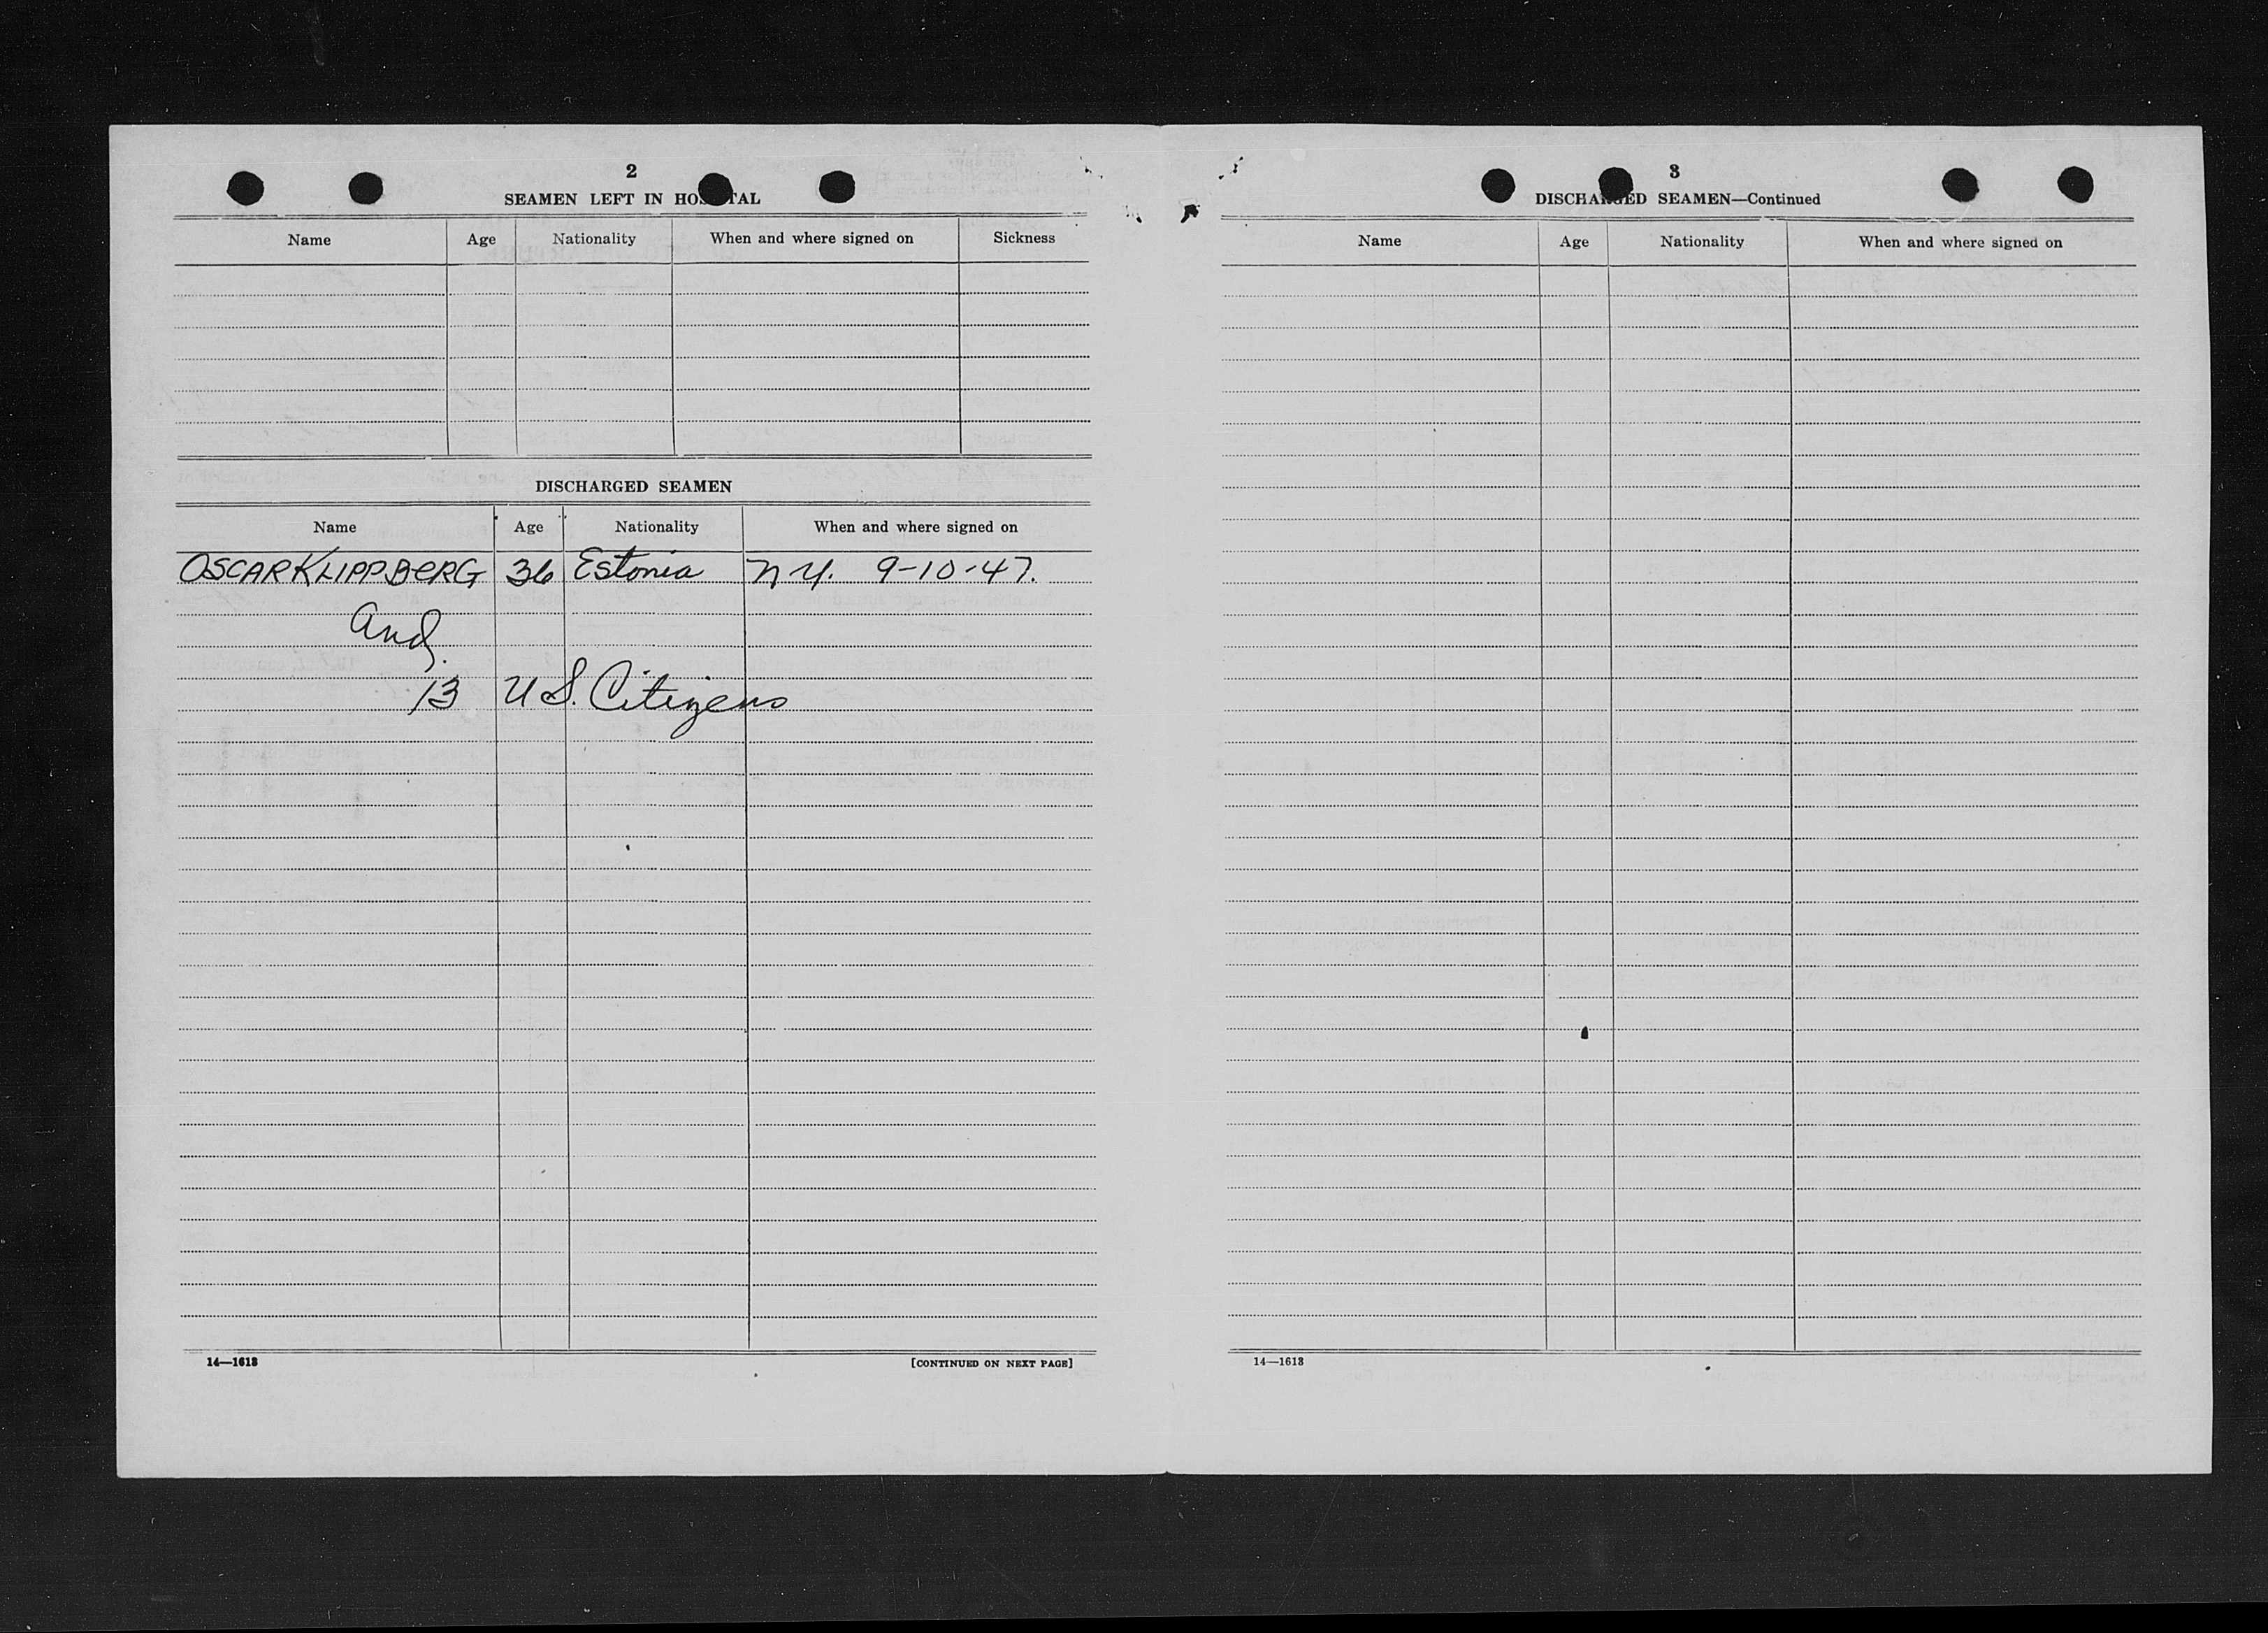 2
SEAMEN LEFT IN HOSPITAL
Name Age Nationality When and where signed on Sickness
DISCHARGED SEAMEN
Name Age Nationality When and where signed on
OSCAR KLIPPBERG 36 Estonia N.Y. 9-10-47.
And
13 U S. Citizens
14—1613 [CONTINUED ON NEXT PAGE]
3
DISCHARGED SEAMEN—Continued
Name Age Nationality When and where signed on
14—1613